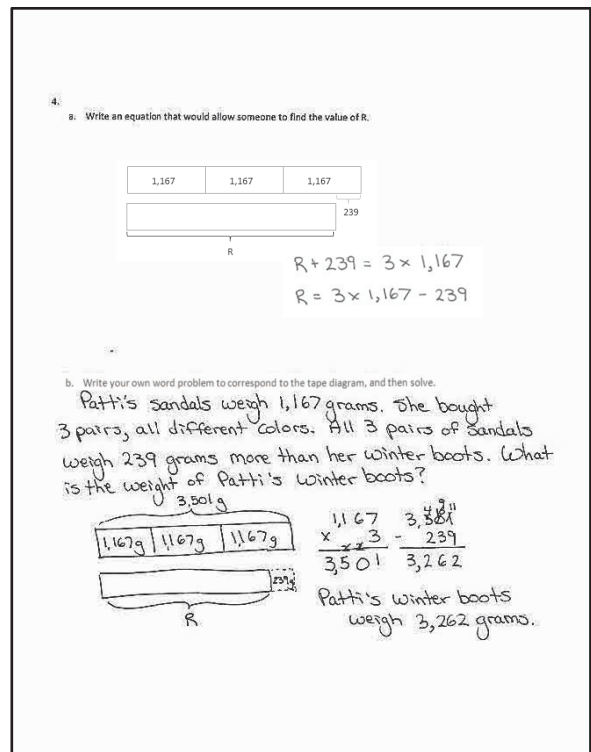 4.
a. Write an equation that would allow someone to find the value of R.
1,167 1,167 1,167
239
R
R + 239 = 3 × 1,167
R = 3 × 1,167 - 239
b. Write your own word problem to correspond to the tape diagram, and then solve.
Patti's sandals weigh 1,167 grams. She bought
3 pairs, all different colors. All 3 pairs of sandals
weigh 239 grams more than her winter boots. What
is the weight of Patti's winter boots?
3,501 g
1,167g 1,167g 1,167g
239g
R
1,167
× 3
3,501
3,501
- 239
3,262
Patti's winter boots
weigh 3,262 grams.